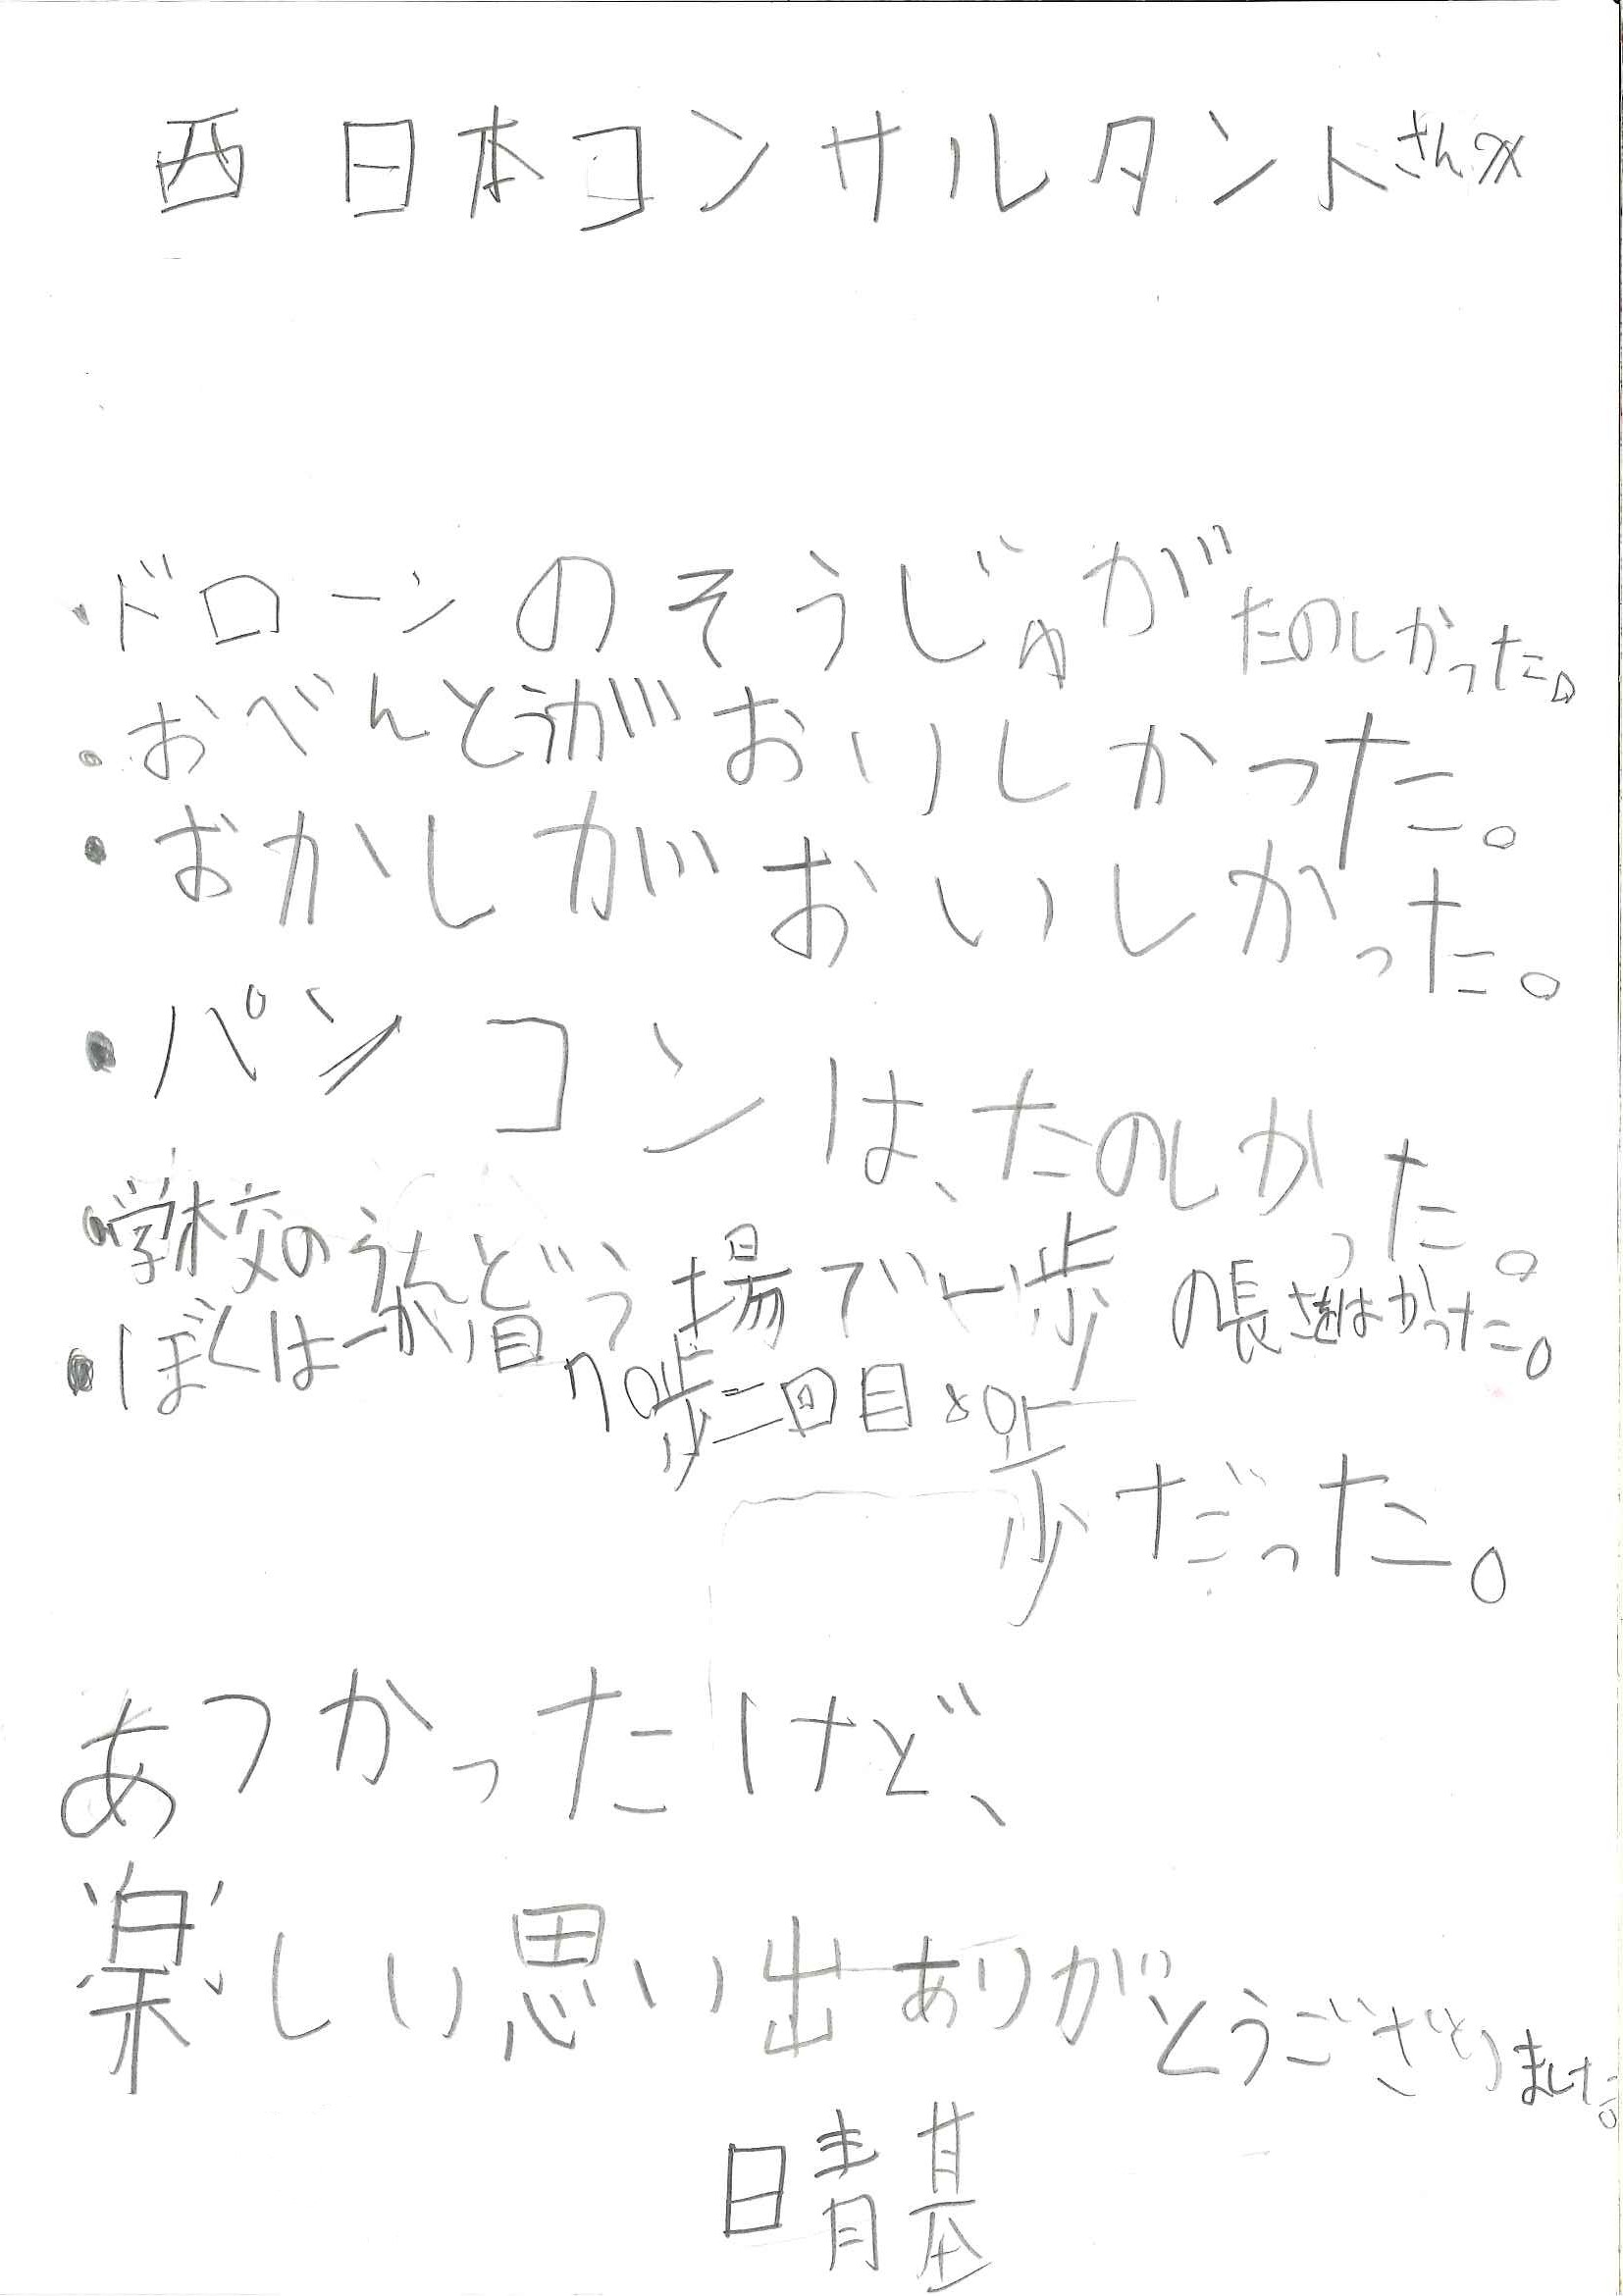 西日本コンサルタントさんへ
・ドローンのそうじゅがたのしかった。
・おべんとうがおいしかった。
・おかしがおいしかった。
・パソコンは、たのしかった。
・学校のうんどう場で一歩の長さをはかった。
・ぼくは一かい目70歩二回目80歩だった。
あつかったけど、
楽しい思い出ありがとうございました。
晴基